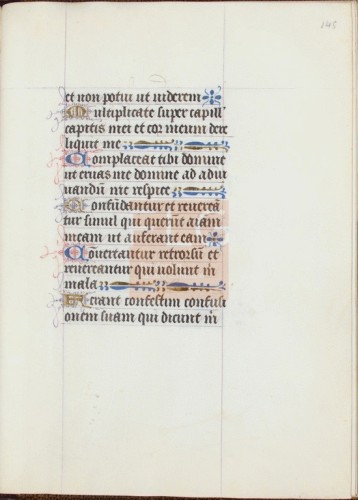 145
et non potui ut viderem
Multiplicate super capill'
capitis mei et cor meum dere
liquit me
Complaceat tibi domine
ut eruas me domine ad adiu
uandū me respice
Confūdantur et reuereā
tur simul qui querūt aīam
meam ut auferant eam
Cōuertantur retrorsū et
reuereantur qui uolunt m̄
mala
Ferant confestim confusi
onem suam qui dicunt m̄